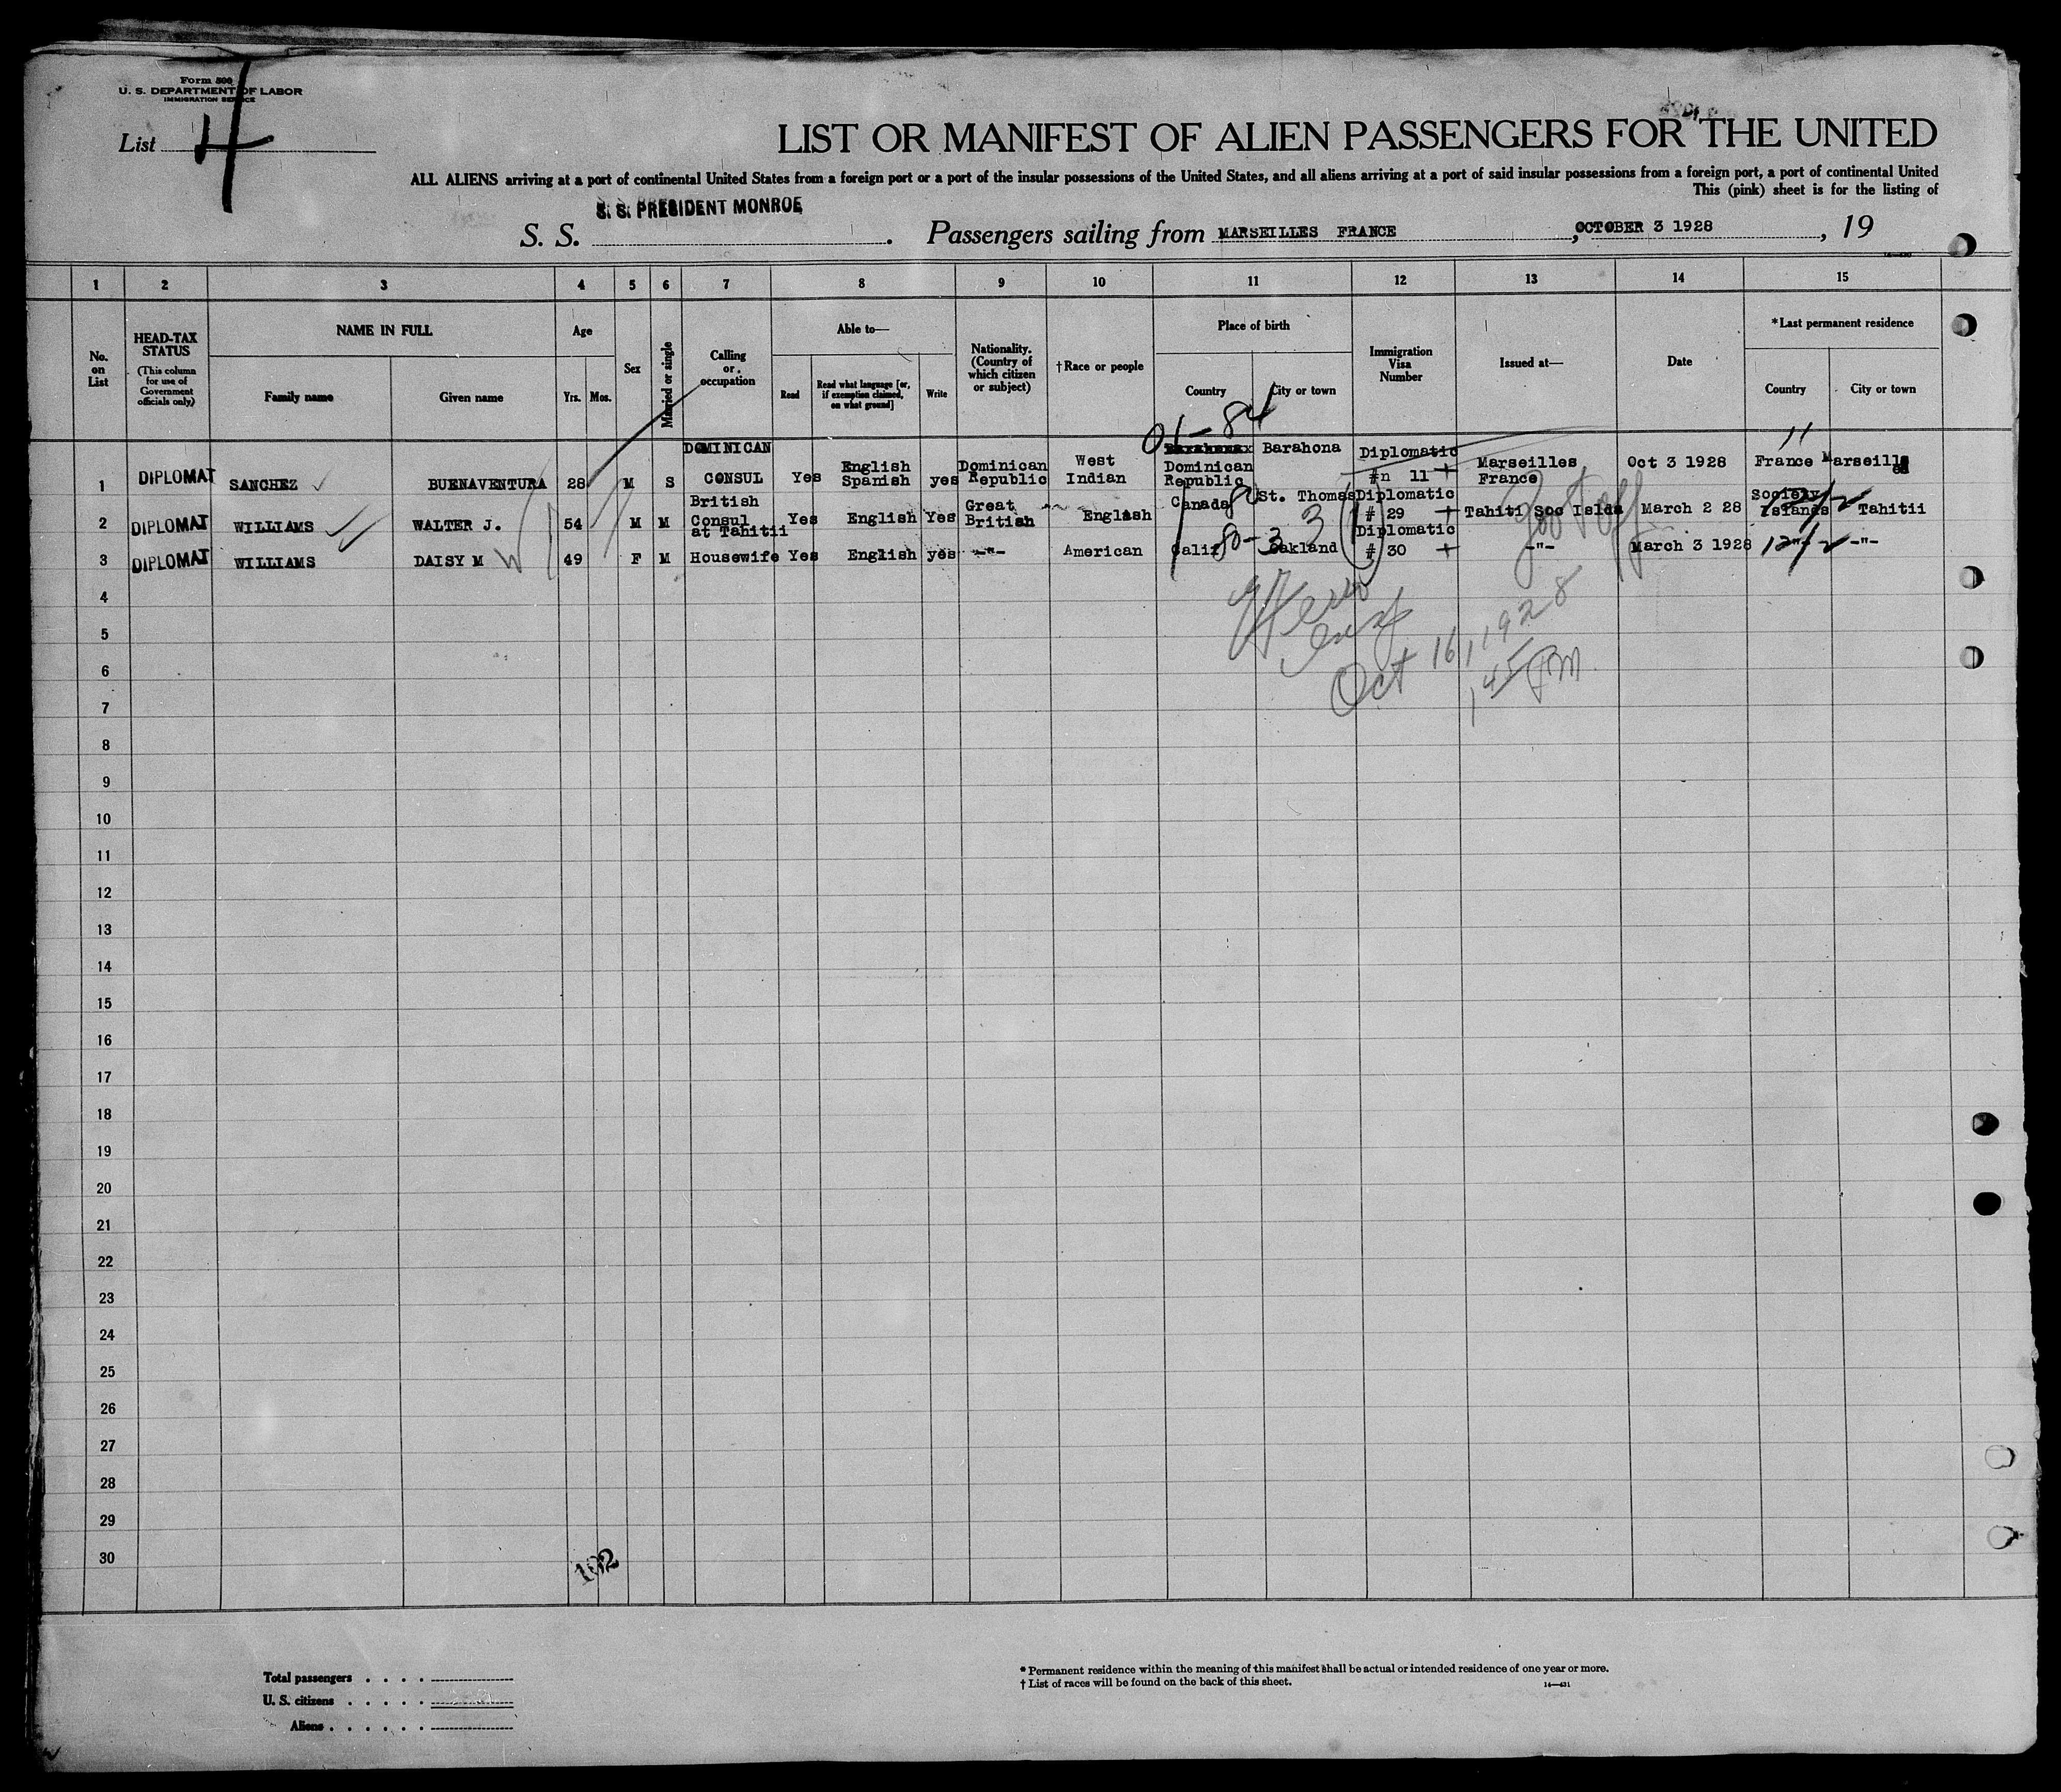 Form 500
U. S. DEPARTMENT OF LABOR
IMMIGRATION SERVICE
List 4
LIST OR MANIFEST OF ALIEN PASSENGERS FOR THE UNITED
ALL ALIENS arriving at a port of continental United States from a foreign port or a port of the insular possessions of the United States, and all aliens arriving at a port of said insular possessions from a foreign port, a port of continental United
This (pink) sheet is for the listing of
S. S. PRESIDENT MONROE
S. S. . Passengers sailing from MARSEILLES FRANCE , OCTOBER 3 1928 , 19
1 2 3 4 5 6 7 8 9 10 11 12 13 14 15
No. on List
HEAD-TAX STATUS
(This column for use of Government officials only)
NAME IN FULL
Family name
Given name
Age
Yrs. Mos.
Sex
Married or single
Calling or occupation
Able to—
Read
Read what language [or, if exemption claimed, on what ground]
Write
Nationality. (Country of which citizen or subject)
†Race or people
Place of birth
Country
City or town
Immigration Visa Number
Issued at—
Date
*Last permanent residence
Country
City or town
01-84
11
1 DIPLOMAT SANCHEZ BUENAVENTURA 28 M S DOMINICAN CONSUL Yes English Spanish yes Dominican Republic West Indian Dominican Republic Barahona Diplomatic #n 11 + Marseilles France Oct 3 1928 France Marseilles
2 DIPLOMAT WILLIAMS WALTER J. 54 M M British Consul at Tahitii Yes English Yes Great British English Canada St. Thomas Diplomatic # 29 + Tahiti Soc Islds March 2 28 Society Islands Tahitii
3 DIPLOMAT WILLIAMS DAISY M 49 F M Housewife Yes English yes -"- American Calif Oakland Diplomatic # 30 + -"- March 3 1928 -"- -"-
80-3
3
Oct 16, 1928
1 45 PM
4
5
6
7
8
9
10
11
12
13
14
15
16
17
18
19
20
21
22
23
24
25
26
27
28
29
30
102
Total passengers . . . .
U. S. citizens . . . . .
Aliens . . . . . .
* Permanent residence within the meaning of this manifest shall be actual or intended residence of one year or more.
† List of races will be found on the back of this sheet.
14—431